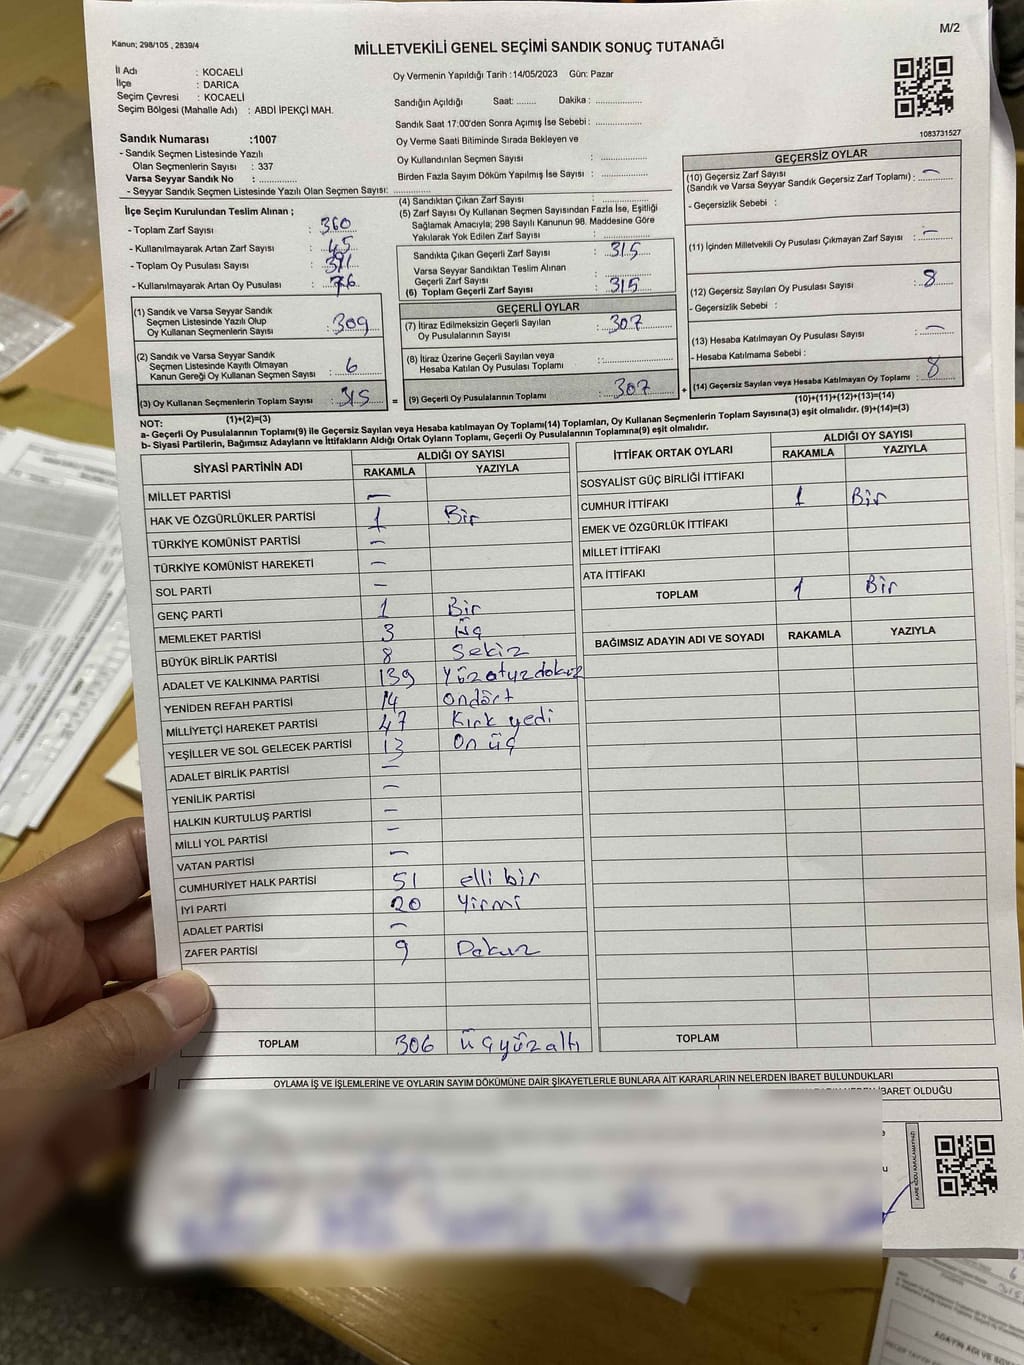 Kanun; 298/105 , 2839/4
M/2
MİLLETVEKİLİ GENEL SEÇİMİ SANDIK SONUÇ TUTANAĞI
İl Adı : KOCAELİ
İlçe : DARICA
Seçim Çevresi : KOCAELİ
Seçim Bölgesi (Mahalle Adı) : ABDİ İPEKÇİ MAH.
Sandık Numarası :1007
- Sandık Seçmen Listesinde Yazılı
Olan Seçmenlerin Sayısı : 337
Varsa Seyyar Sandık No : ..............
- Seyyar Sandık Seçmen Listesinde Yazılı Olan Seçmen Sayısı: ..............
Oy Vermenin Yapıldığı Tarih :14/05/2023 Gün: Pazar
Sandığın Açıldığı Saat: ........ Dakika : ................
Sandık Saat 17:00'den Sonra Açımış İse Sebebi: ................
Oy Verme Saati Bitiminde Sırada Bekleyen ve
Oy Kullandırılan Seçmen Sayısı : ................
Birden Fazla Sayım Döküm Yapılmış İse Sayısı : ................
1083731527
İlçe Seçim Kurulundan Teslim Alınan ;
- Toplam Zarf Sayısı : 360
- Kullanılmayarak Artan Zarf Sayısı : 45
- Toplam Oy Pusulası Sayısı :
- Kullanılmayarak Artan Oy Pusulası : 76
(1) Sandık ve Varsa Seyyar Sandık
Seçmen Listesinde Yazılı Olup
Oy Kullanan Seçmenlerin Sayısı : 309
(2) Sandık ve Varsa Seyyar Sandık
Seçmen Listesinde Kayıtlı Olmayan
Kanun Gereği Oy Kullanan Seçmen Sayısı : 6
(3) Oy Kullanan Seçmenlerin Toplam Sayısı : 315 =
(1)+(2)=(3)
(4) Sandıktan Çıkan Zarf Sayısı : ................
(5) Zarf Sayısı Oy Kullanan Seçmen Sayısından Fazla İse, Eşitliği
Sağlamak Amacıyla; 298 Sayılı Kanunun 98. Maddesine Göre
Yakılarak Yok Edilen Zarf Sayısı : ................
Sandıkta Çıkan Geçerli Zarf Sayısı : 315
Varsa Seyyar Sandıktan Teslim Alınan
Geçerli Zarf Sayısı : ................
(6) Toplam Geçerli Zarf Sayısı : 315
GEÇERLİ OYLAR
(7) İtiraz Edilmeksizin Geçerli Sayılan
Oy Pusulalarının Sayısı : 307
(8) İtiraz Üzerine Geçerli Sayılan veya
Hesaba Katılan Oy Pusulası Toplamı : ................
(9) Geçerli Oy Pusulalarının Toplamı : 307 +
GEÇERSİZ OYLAR
(10) Geçersiz Zarf Sayısı
(Sandık ve Varsa Seyyar Sandık Geçersiz Zarf Toplamı) : —
- Geçersizlik Sebebi :
(11) İçinden Milletvekili Oy Pusulası Çıkmayan Zarf Sayısı : —
(12) Geçersiz Sayılan Oy Pusulası Sayısı : 8
- Geçersizlik Sebebi :
(13) Hesaba Katılmayan Oy Pusulası Sayısı : —
- Hesaba Katılmama Sebebi :
(14) Geçersiz Sayılan veya Hesaba Katılmayan Oy Toplamı : 8
(10)+(11)+(12)+(13)=(14)
NOT:
a- Geçerli Oy Pusulalarının Toplamı(9) ile Geçersiz Sayılan veya Hesaba Katılmayan Oy Toplamı(14) Toplamları, Oy Kullanan Seçmenlerin Toplam Sayısına(3) eşit olmalıdır. (9)+(14)=(3)
b- Siyasi Partilerin, Bağımsız Adayların ve İttifakların Aldığı Ortak Oyların Toplamı, Geçerli Oy Pusulalarının Toplamına(9) eşit olmalıdır.
SİYASİ PARTİNİN ADI ALDIĞI OY SAYISI
RAKAMLA YAZIYLA
MİLLET PARTİSİ —
HAK VE ÖZGÜRLÜKLER PARTİSİ 1 Bir
TÜRKİYE KOMÜNİST PARTİSİ —
TÜRKİYE KOMÜNİST HAREKETİ —
SOL PARTİ —
GENÇ PARTİ 1 Bir
MEMLEKET PARTİSİ 3 Üç
BÜYÜK BİRLİK PARTİSİ 8 Sekiz
ADALET VE KALKINMA PARTİSİ 139 Yüzotuzdokuz
YENİDEN REFAH PARTİSİ 14 Ondört
MİLLİYETÇİ HAREKET PARTİSİ 47 Kırk yedi
YEŞİLLER VE SOL GELECEK PARTİSİ 13 On üç
ADALET BİRLİK PARTİSİ —
YENİLİK PARTİSİ —
HALKIN KURTULUŞ PARTİSİ —
MİLLİ YOL PARTİSİ —
VATAN PARTİSİ —
CUMHURİYET HALK PARTİSİ 51 elli bir
İYİ PARTİ 20 Yirmi
ADALET PARTİSİ —
ZAFER PARTİSİ 9 Dokuz
TOPLAM 306 üçyüzaltı
İTTİFAK ORTAK OYLARI ALDIĞI OY SAYISI
RAKAMLA YAZIYLA
SOSYALİST GÜÇ BİRLİĞİ İTTİFAKI
CUMHUR İTTİFAKI 1 Bir
EMEK VE ÖZGÜRLÜK İTTİFAKI
MİLLET İTTİFAKI
ATA İTTİFAKI
TOPLAM 1 Bir
BAĞIMSIZ ADAYIN ADI VE SOYADI RAKAMLA YAZIYLA
TOPLAM
OYLAMA İŞ VE İŞLEMLERİNE VE OYLARIN SAYIM DÖKÜMÜNE DAİR ŞİKAYETLERLE BUNLARA AİT KARARLARIN NELERDEN İBARET BULUNDUKLARI
İBARET OLDUĞU